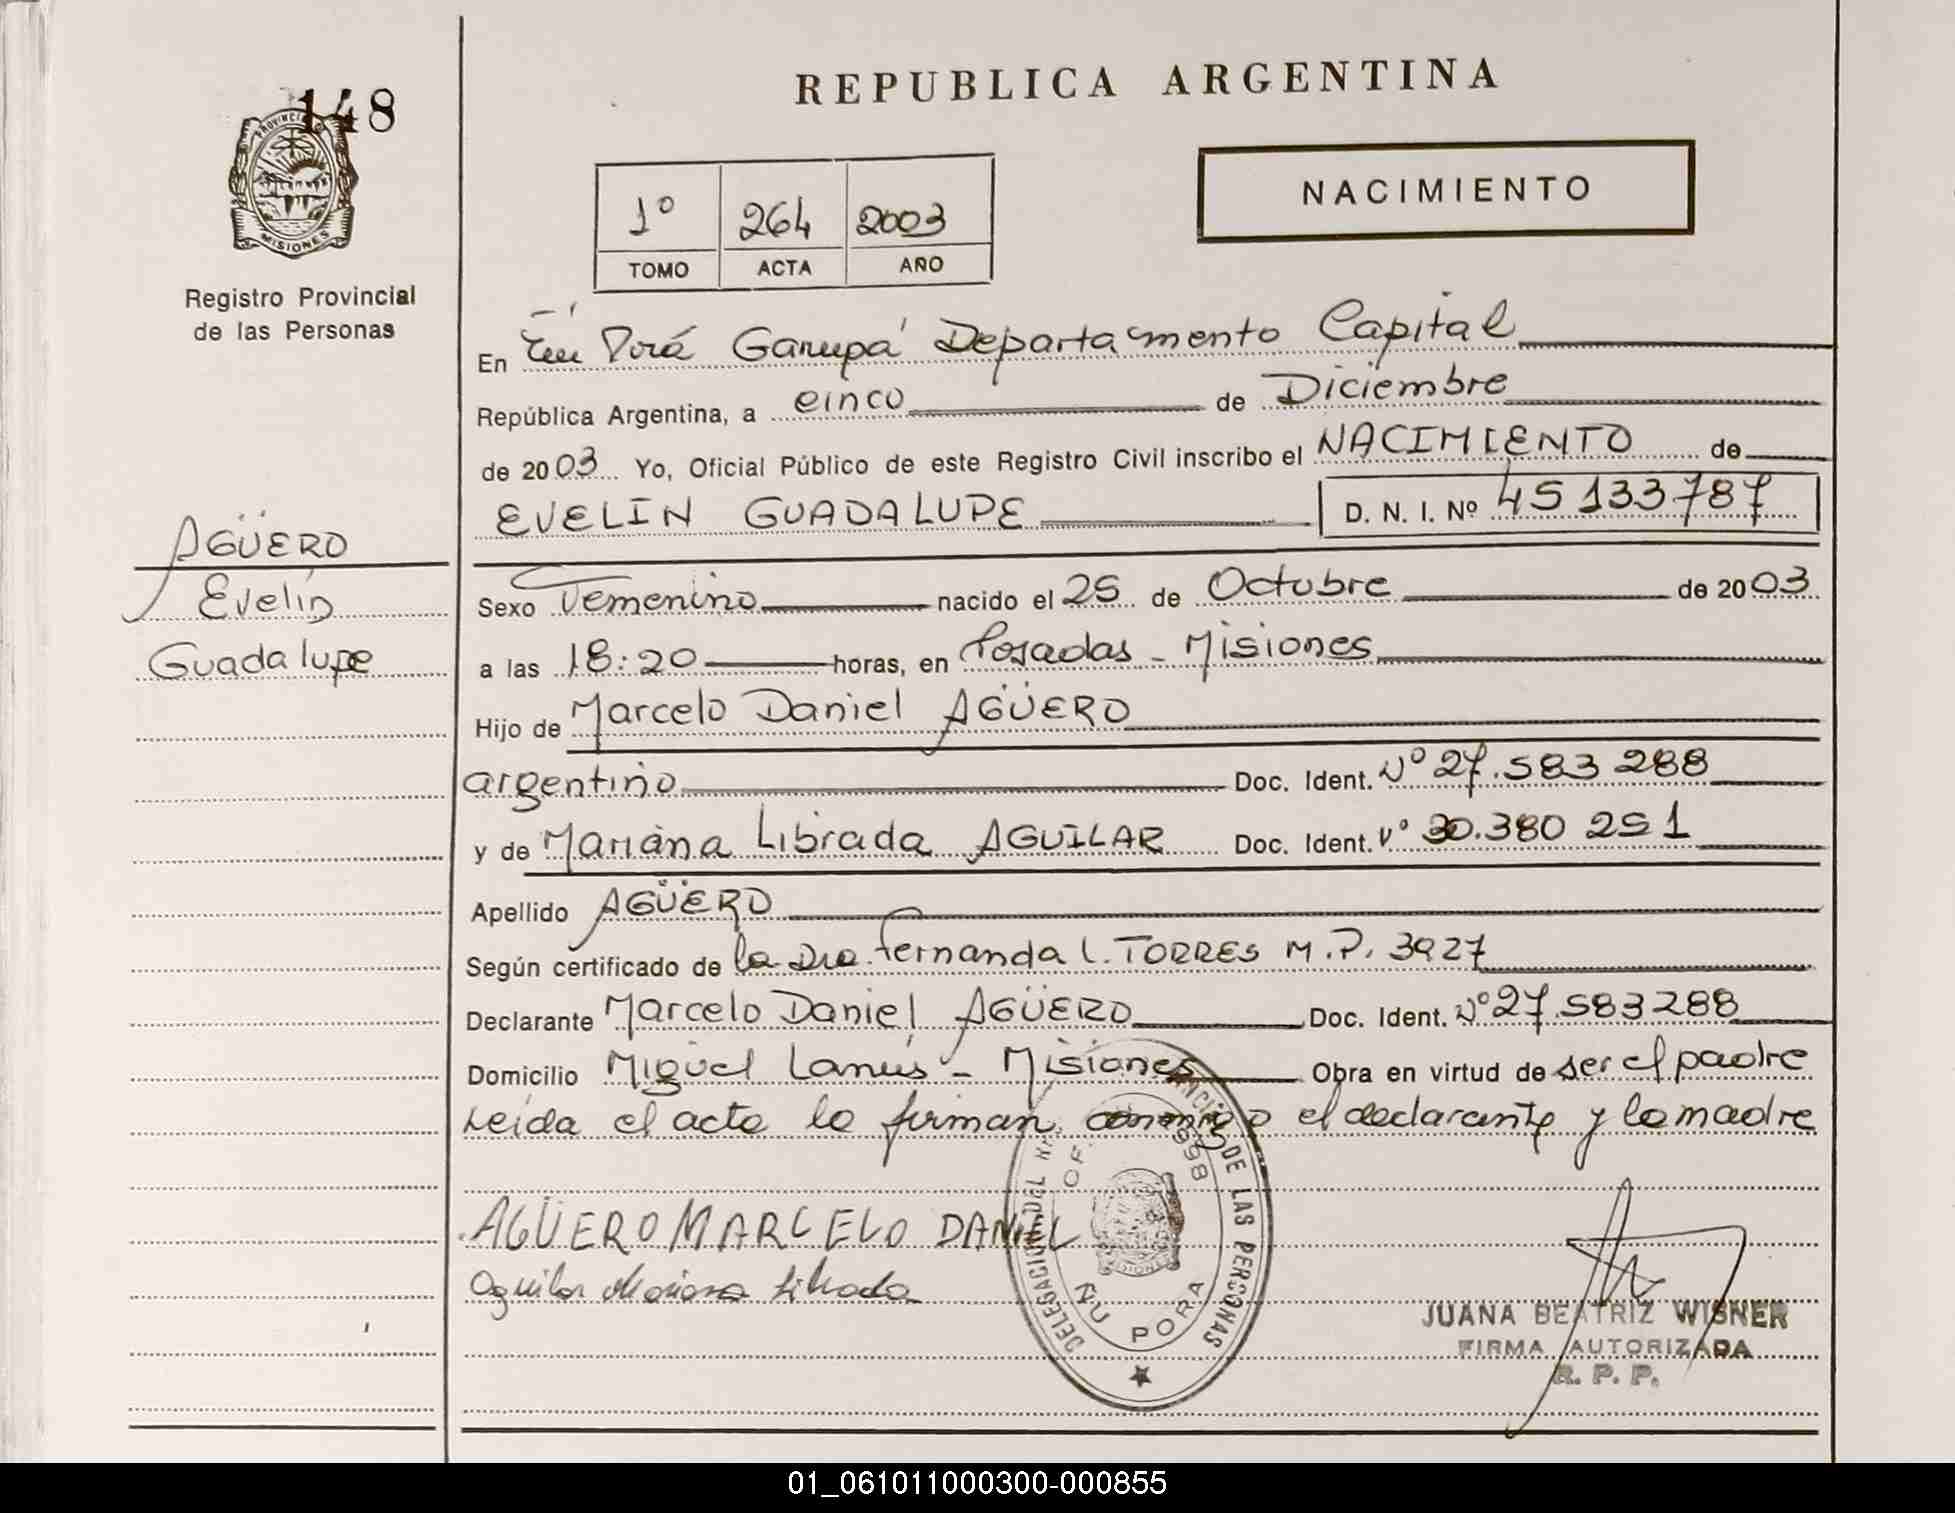 148
PROVINCIA
MISIONES
Registro Provincial
de las Personas
REPUBLICA ARGENTINA
NACIMIENTO
1º 264 2003
TOMO ACTA AÑO
En Porá Garupá Departamento Capital
República Argentina, a cinco de Diciembre
de 2003 Yo, Oficial Público de este Registro Civil inscribo el NACIMIENTO de
EVELIN GUADALUPE D. N. I. Nº 45133787
AGÜERO
Evelin
Guadalupe
Sexo Femenino nacido el 25 de Octubre de 2003
a las 18:20 horas, en Posadas - Misiones
Hijo de Marcelo Daniel AGÜERO
argentino Doc. Ident. Nº 27.583 288
y de Mariana Librada AGUILAR Doc. Ident. Nº 30.380 251
Apellido AGÜERO
Según certificado de la Dra. Fernanda L. TORRES M.P. 3927
Declarante Marcelo Daniel AGÜERO Doc. Ident. Nº 27.583288
Domicilio Miguel Lanús - Misiones Obra en virtud de ser el padre
Leída el acta la firman conmigo el declarante y la madre
AGÜERO MARCELO DANIEL
Aguilar Mariana Librada
DELEGACION DEL DE LAS PERSONAS
OF. 998
MISIONES
ÑU PORA
JUANA BEATRIZ WISNER
FIRMA AUTORIZADA
R. P. P.
01_061011000300-000855